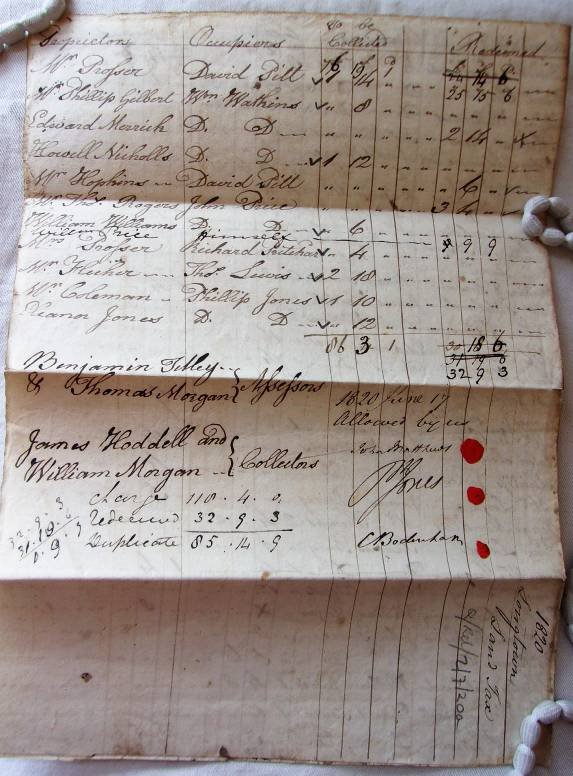 To be
Proprietors Occupiers Collected Redeemed
Mr Prosser David Pitt 76 19 1
Mr Phillip Gilbert Wm Watkins 1 14 25 15 6
Edward Merrick D. D 8
Howell Nicholls D. D 1 12 2 14
Mr Hopkins David Pitt 6
Mr Thos Rogers John Price 3 4
William Williams D. D 6
Price Himself 9 9
Mrs Prosser Richard 4
Mr Flecher Thos Lewis 2 18
Mr Coleman Phillip Jones 1 10
Eleanor Jones D. D 12
86 3 1 30 18 6
32 9 3
Benjamin Tilley
& Thomas Morgan } Assessors
1820 June 17
Allowed by us
James Hoddell and
William Morgan } Collectors
John Matthews
Jones
C Bodenham
Charge 118 . 4 . 0
Redeemed 32 . 9 . 3
Duplicate 85 . 14 . 9
32 . 9 . 3
31 . 19 . 6
0 . 9 . 9
1820
Longtown
Land Tax